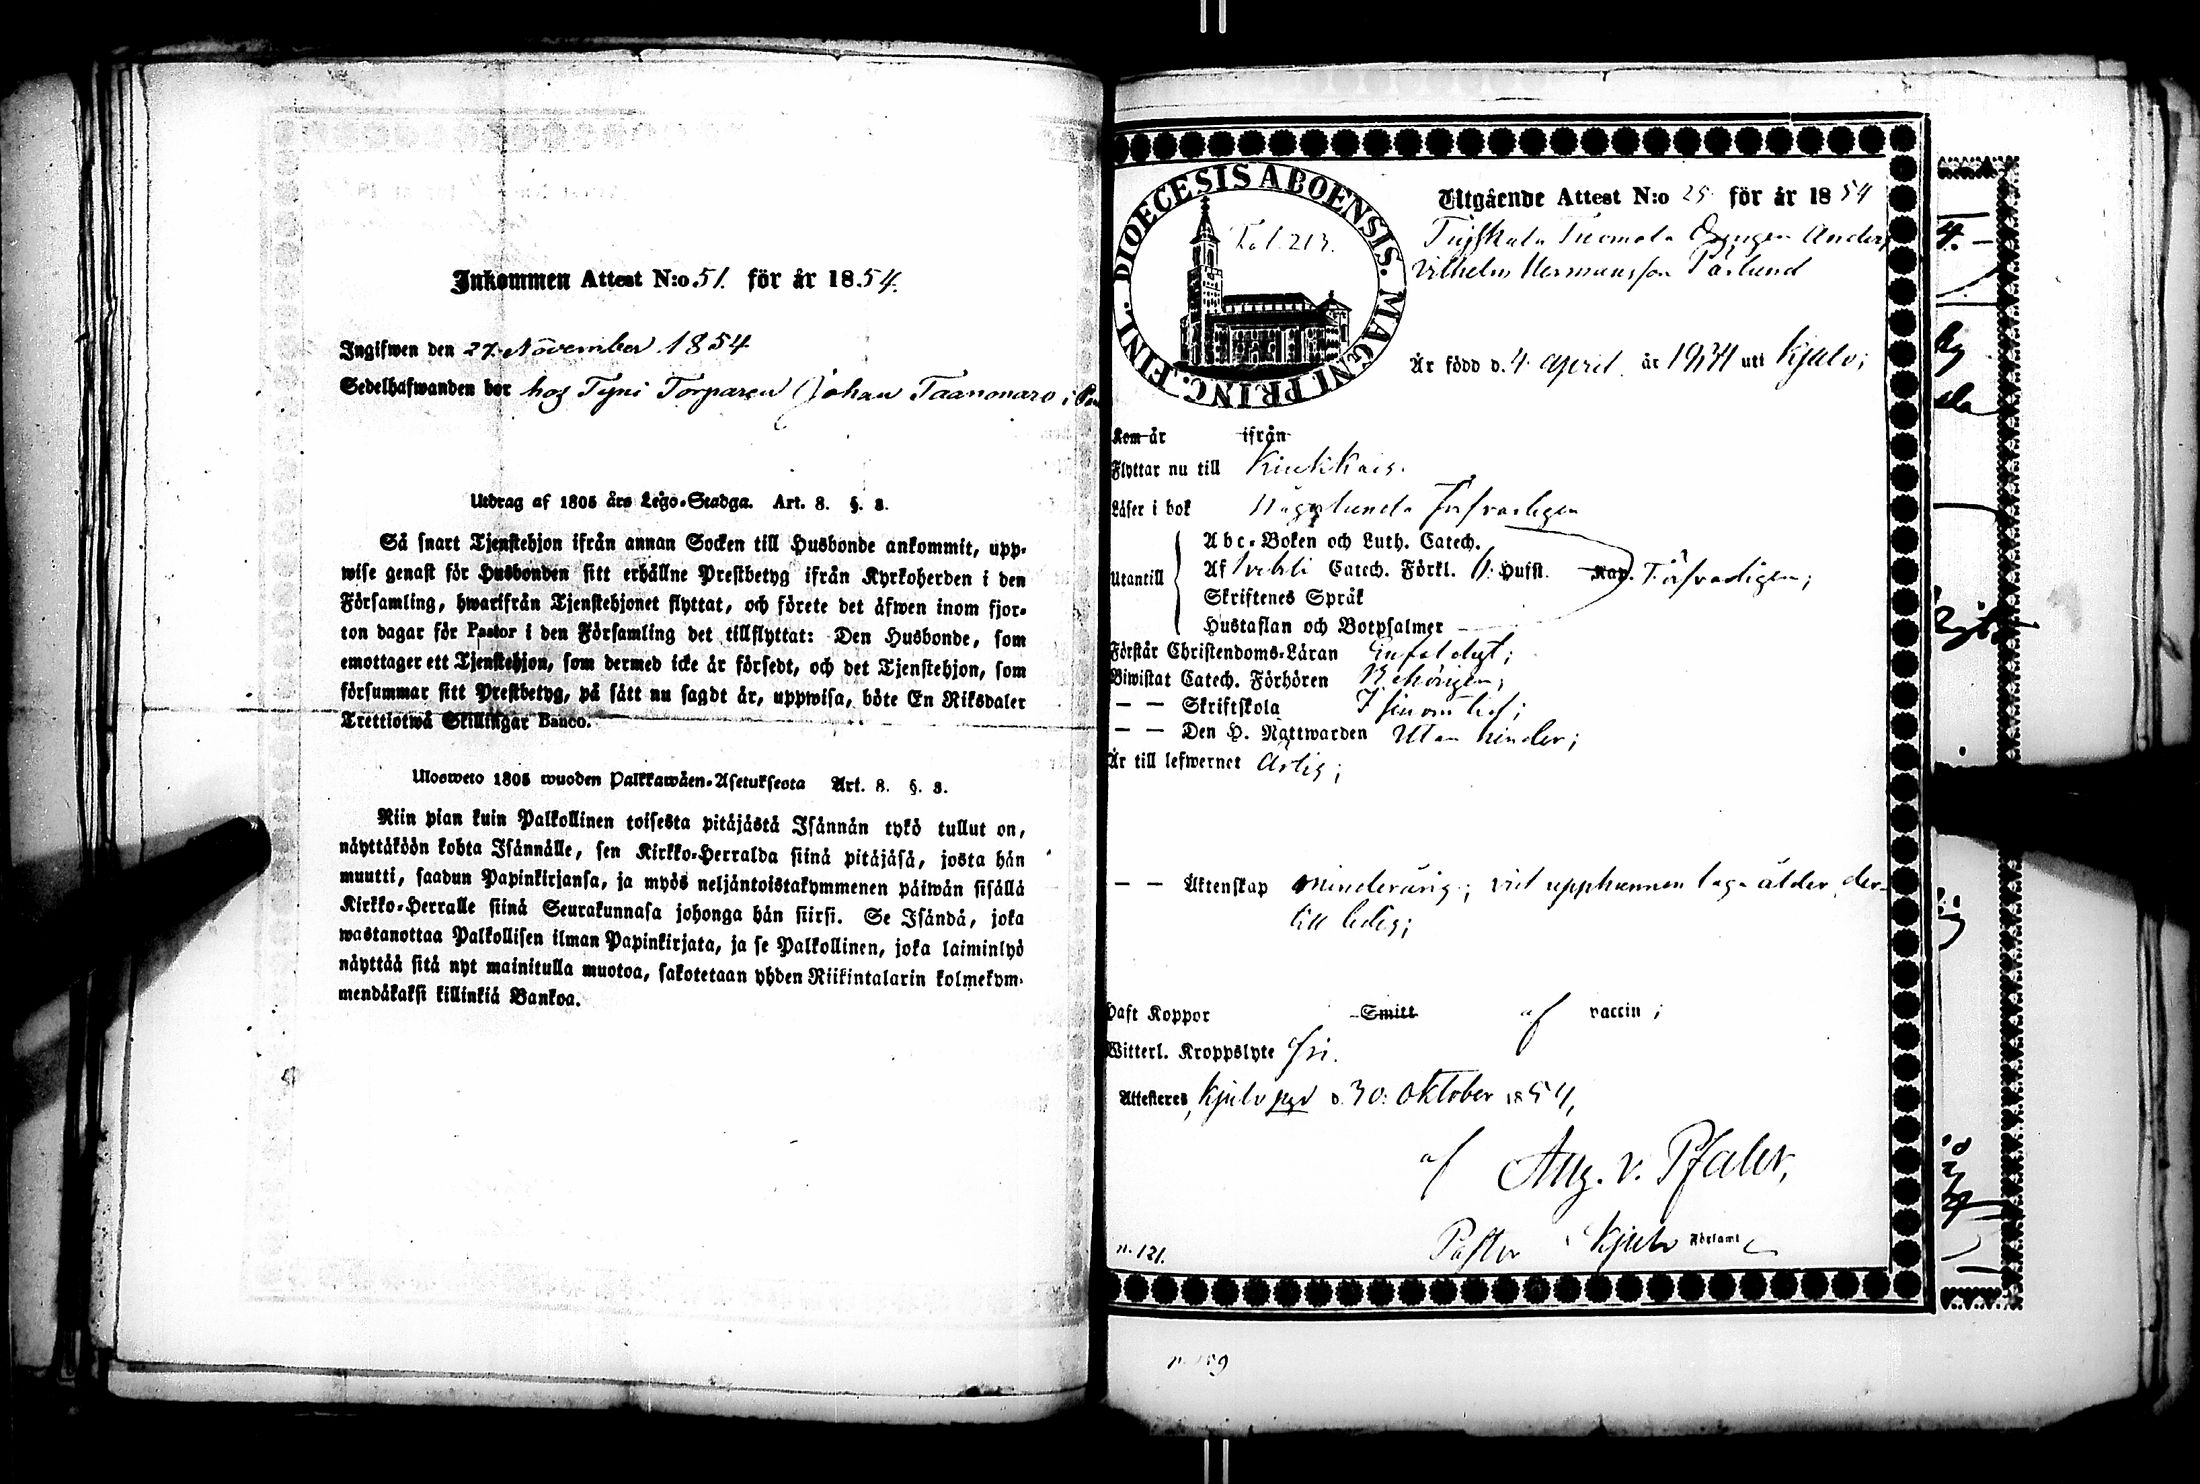 Inkommen Attest N:o 51. för år 1854.
Ingifwen den 27. November 1854
Sedelhafwanden bor hos Tyni Torparen Johan Taanonaro i
Utdrag af 1805 års Lego-Stadga. Art. 8. §. 3.
Så snart Tjenstehjon ifrån annan Socken till Husbonde ankommit, upp-
wise genast för Husbonden sitt erhållne Prestbetyg ifrån Kyrkoherden i den
Församling, hwarifrån Tjenstehjonet flyttat, och förete det äfwen inom fjor-
ton dagar för Pastor i den Församling det tillflyttat: Den Husbonde, som
emottager ett Tjenstehjon, som dermed icke är försedt, och det Tjenstehjon, som
försummar sitt Prestbetyg, på sätt nu sagdt är, uppwisa, böte En Riksdaler
Trettiotwå Skillingar Banco.
Ulosweto 1805 wuoden Palkkawäen-Asetuksesta Art. 8. §. 3.
Niin pian kuin Palkollinen toisesta pitäjästä Isännän tykö tullut on,
näyttäköön kohta Isännälle, sen Kirkko-Herralda siinä pitäjäsä, josta hän
muutti, saadun Papinkirjansa, ja myös neljäntoistakymmenen päiwän sisällä
Kirkko-Herralle siinä Seurakunnasa johonga hän siirsi. Se Isändä, joka
wastanottaa Palkollisen ilman Papinkirjata, ja se Palkollinen, joka laiminlyö
näyttää sitä nyt mainitulla muotoa, sakotetaan yhden Riikintalarin kolmekym-
mendäkaksi killinkiä Bankoa.
DIOECESIS ABOENSIS. MAGNI PRINC. FINL.
Fol. 213.
Utgående Attest N:o 25 för år 1854
Tuomola Drengen Anders
Vilhelm Hermansson Pärlund
Är född d. 4 April år 1834 uti Kjulo;
Kom år ifrån
Flyttar nu till Kiukkais.
Läser i bok Någorlunda försvarligen
Utantill
Abc-Boken och Luth. Catech.
Af Svebili Catech. Förkl. Husf. Kap. Försvarligen;
Skriftenes Språk
Hustaflan och Botpsalmer
Förstår Christendoms-Läran Enfaldigt;
Biwistat Catech. Förhören Behörigen;
— — Skriftskola I sin om tid;
— — Den H. Nattwarden Utan hinder;
Är till lefwernet Ärlig;
— — Äktenskap minderårig; vid upphunnen laga ålder der-
till ledig;
Haft Koppor Smitt af vaccin;
Witterl. Kroppslyte fri.
Attesteres, Kjulo pgd d. 30. Oktober 1854,
af Aug. v. Pfaler,
Pastor i Kjulo Församl
n. 121.